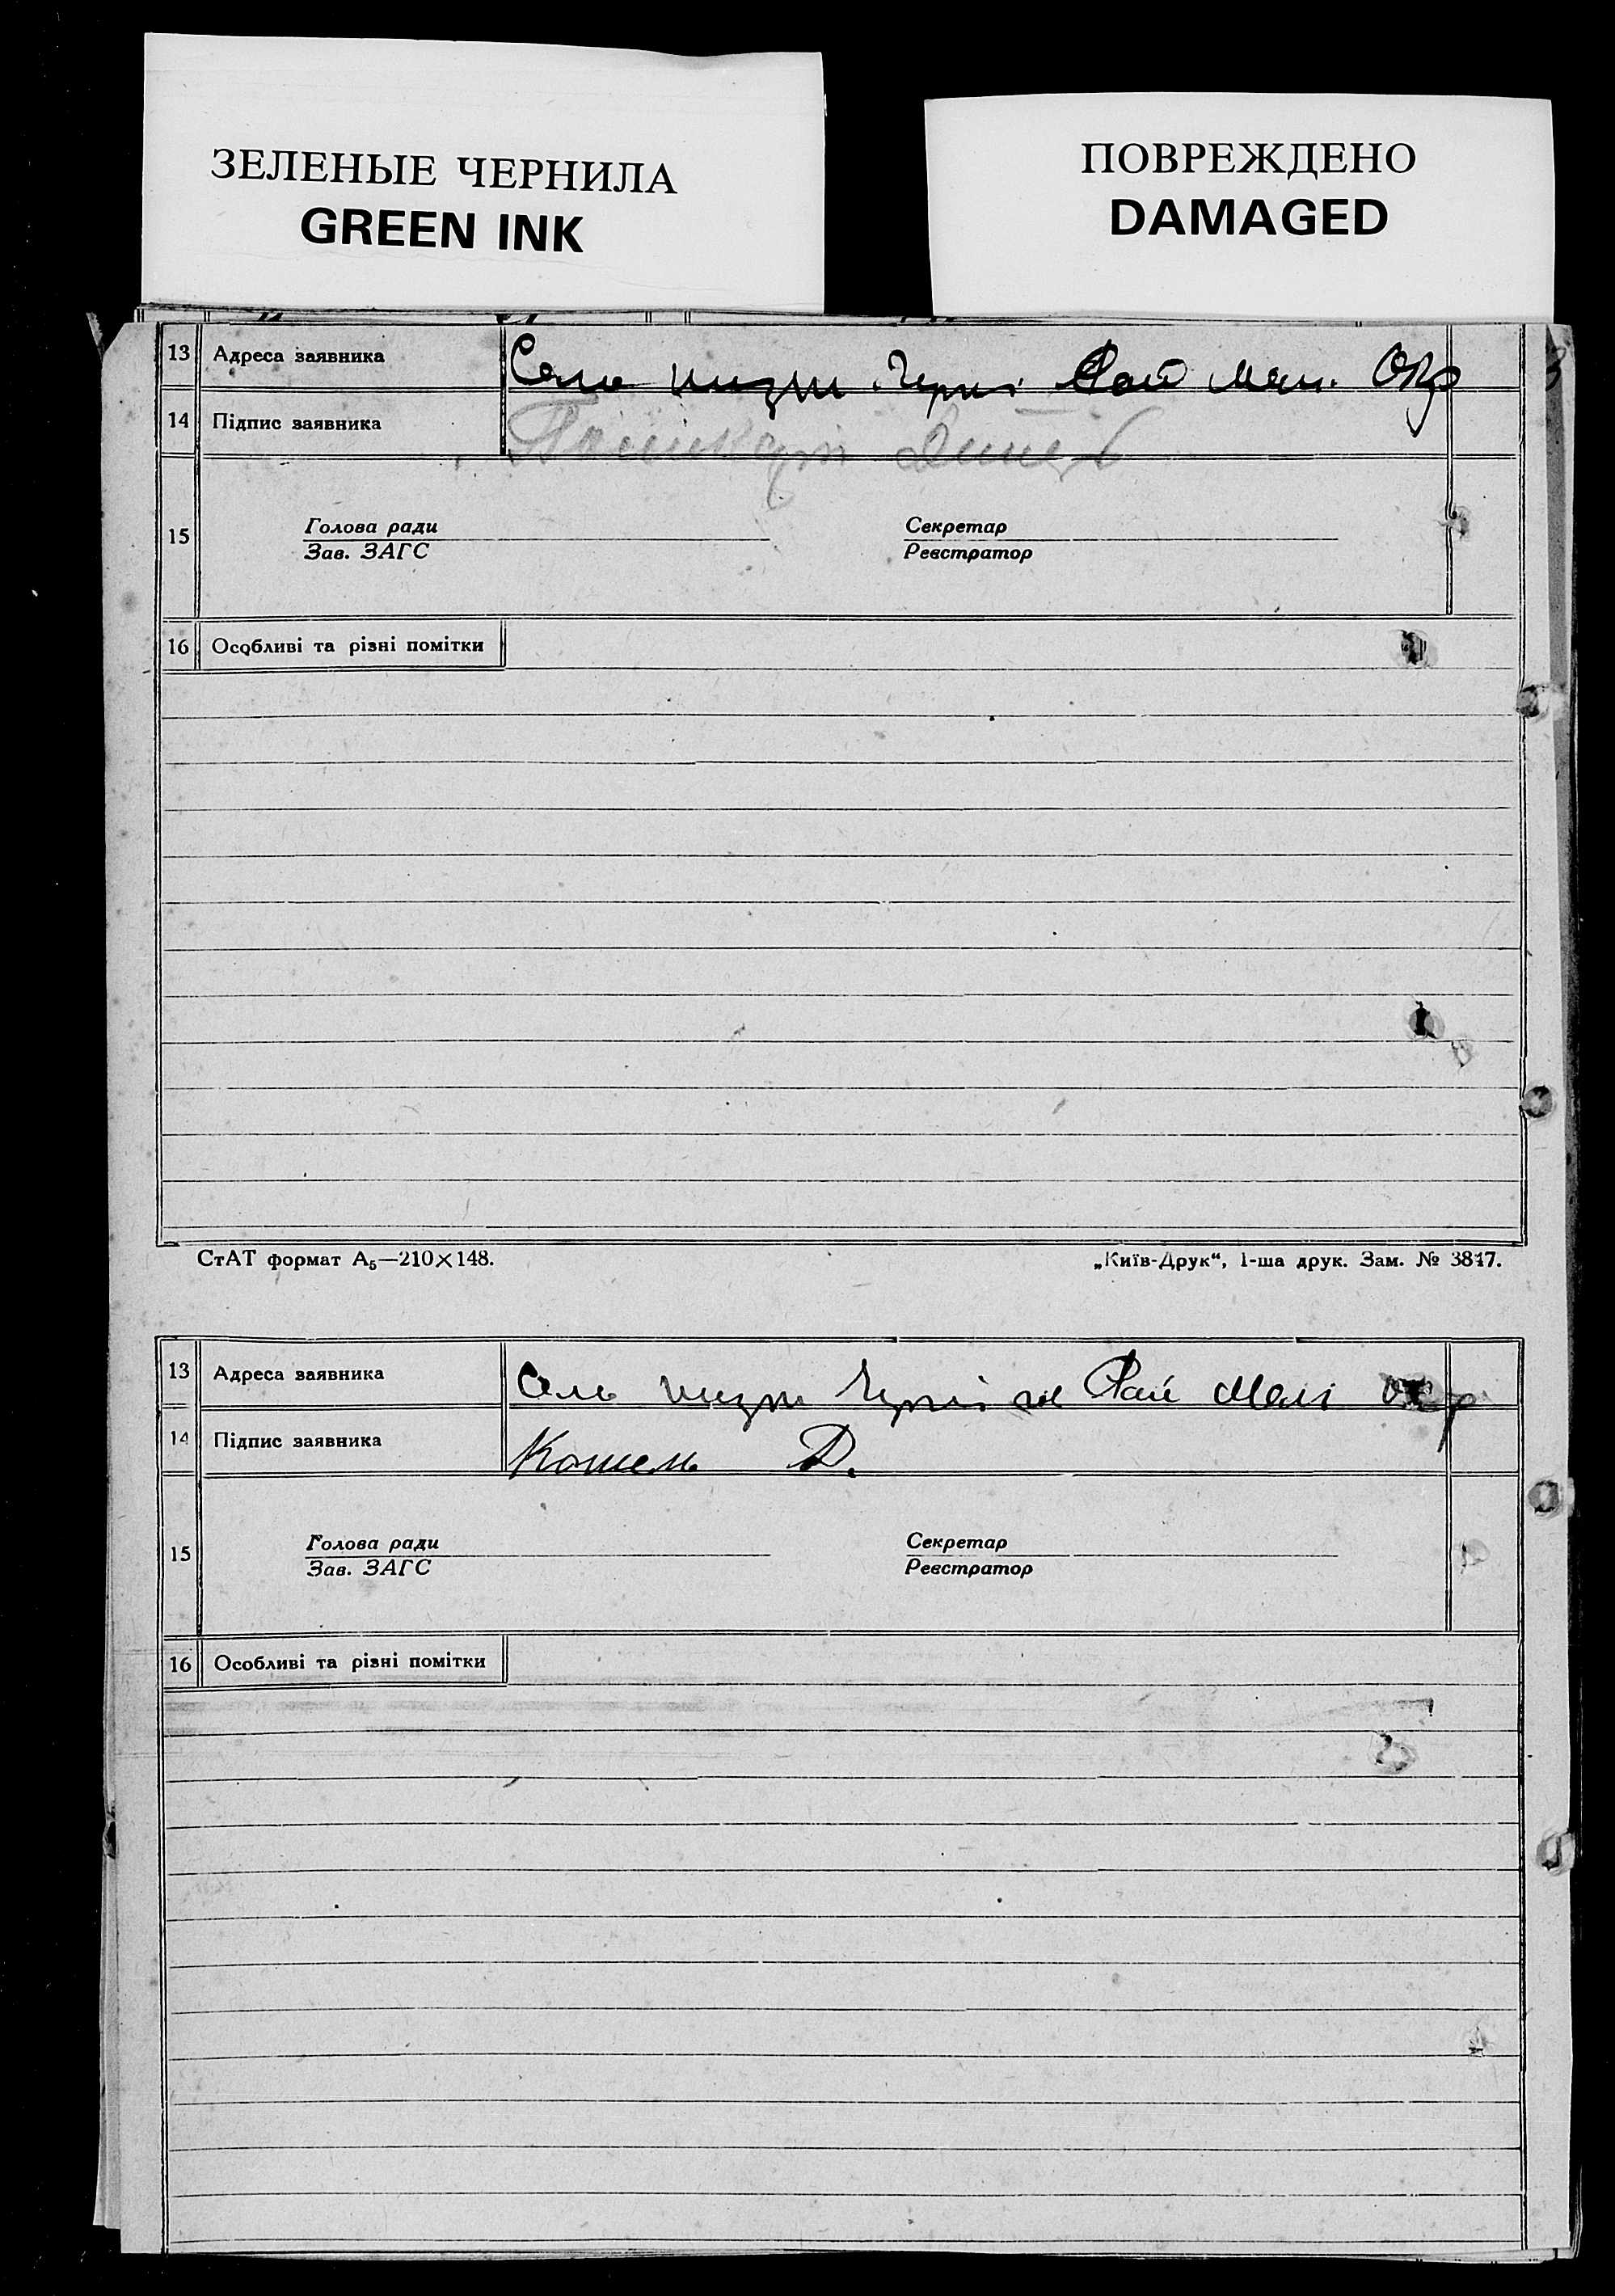 ЗЕЛЕНЫЕ ЧЕРНИЛА
GREEN INK
ПОВРЕЖДЕНО
DAMAGED
13 Адреса заявника Село Рай Окр
14 Підпис заявника
15 Голова ради Секретар
Зав. ЗАГС Реєстратор
16 Особливі та різні помітки
СтАТ формат А₅—210×148. „Київ-Друк“, 1-ша друк. Зам. № 3847.
13 Адреса заявника Село Рай окр
14 Підпис заявника Кошель Д.
15 Голова ради Секретар
Зав. ЗАГС Реєстратор
16 Особливі та різні помітки